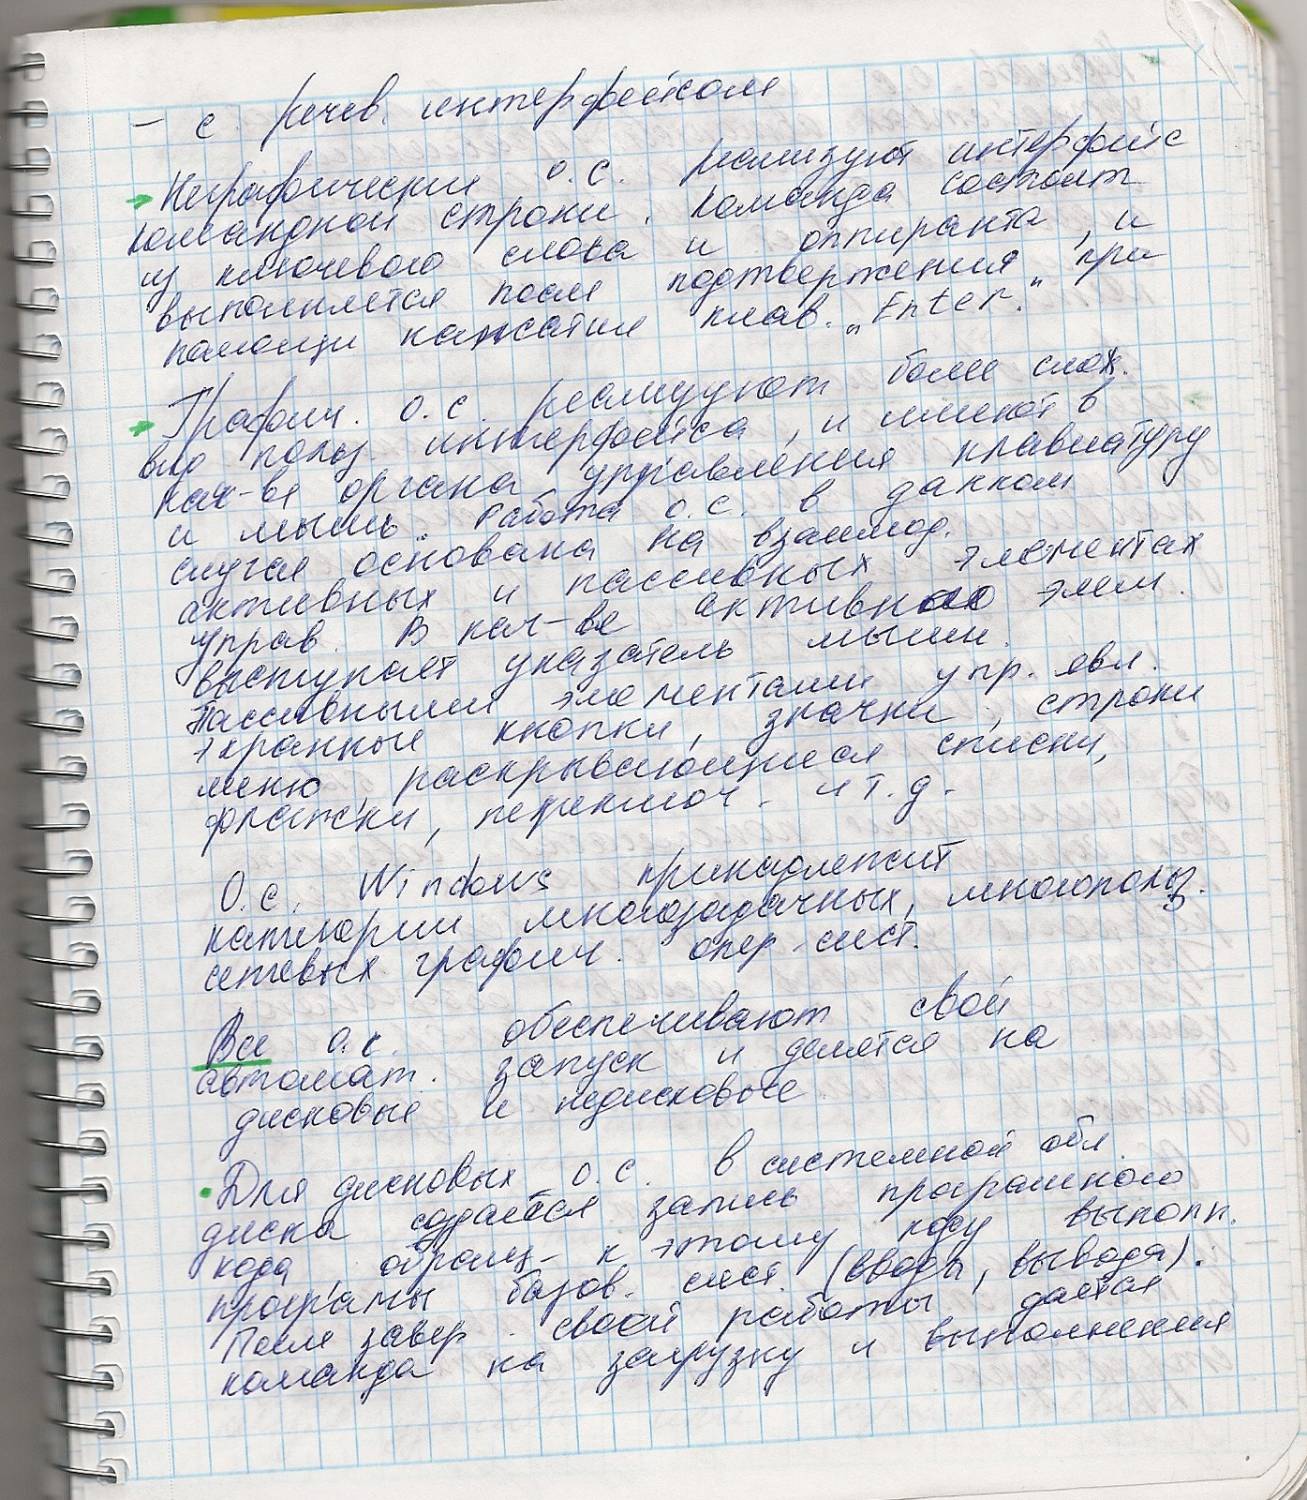 – с речев. интерфейсом
Неграфические о.с. реализуют интерфейс
командной строки. Команда состоит
из ключевого слова и оппиранта, и
выполняется после подтвержения при
помощи нажатия клав. „Enter."
Графич. о.с. реализуют более слож.
вид польз. интерфейса, и имеют в
кач-ве органа управления клавиатуру
и мышь. Работа о.с. в данном
случае основана на взаимод.
активных и пассивных элементах
управ. В кач-ве активного элем.
выступает указатель мыши.
Пассивными элементами упр. явл.
экранные кнопки, значки, строки
меню, раскрывающиеся списки,
флажки, переключ. и т.д.
О.с. Windows принадлежит
категории многозадачных, многопольз.
сетевых графич. опер. сист.
Все о.с. обеспечивают свой
автомат. запуск и делятся на
дисковые и недисковые
Для дисковых о.с. в системной обл.
диска создаётся запись програмного
кода, обращ- к этому коду выполн.
програмы базов. сист. (ввода, вывода).
После завер. своей работы даётся
команда на загрузку и выполнения